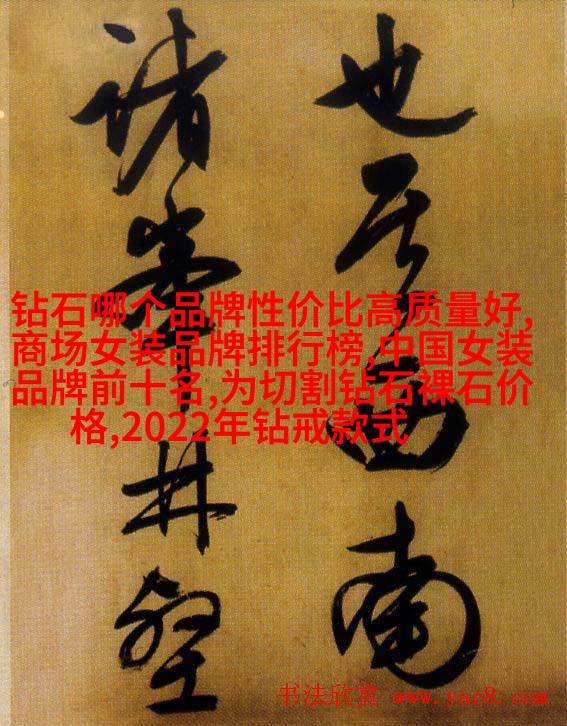 也其西南
諸峯林壑
钻石哪个品牌性价比高质量好,
商场女装品牌排行榜,中国女装
品牌前十名,为切割钻石裸石价
格,2022年钻戒款式
书法欣赏 www.yac8.com